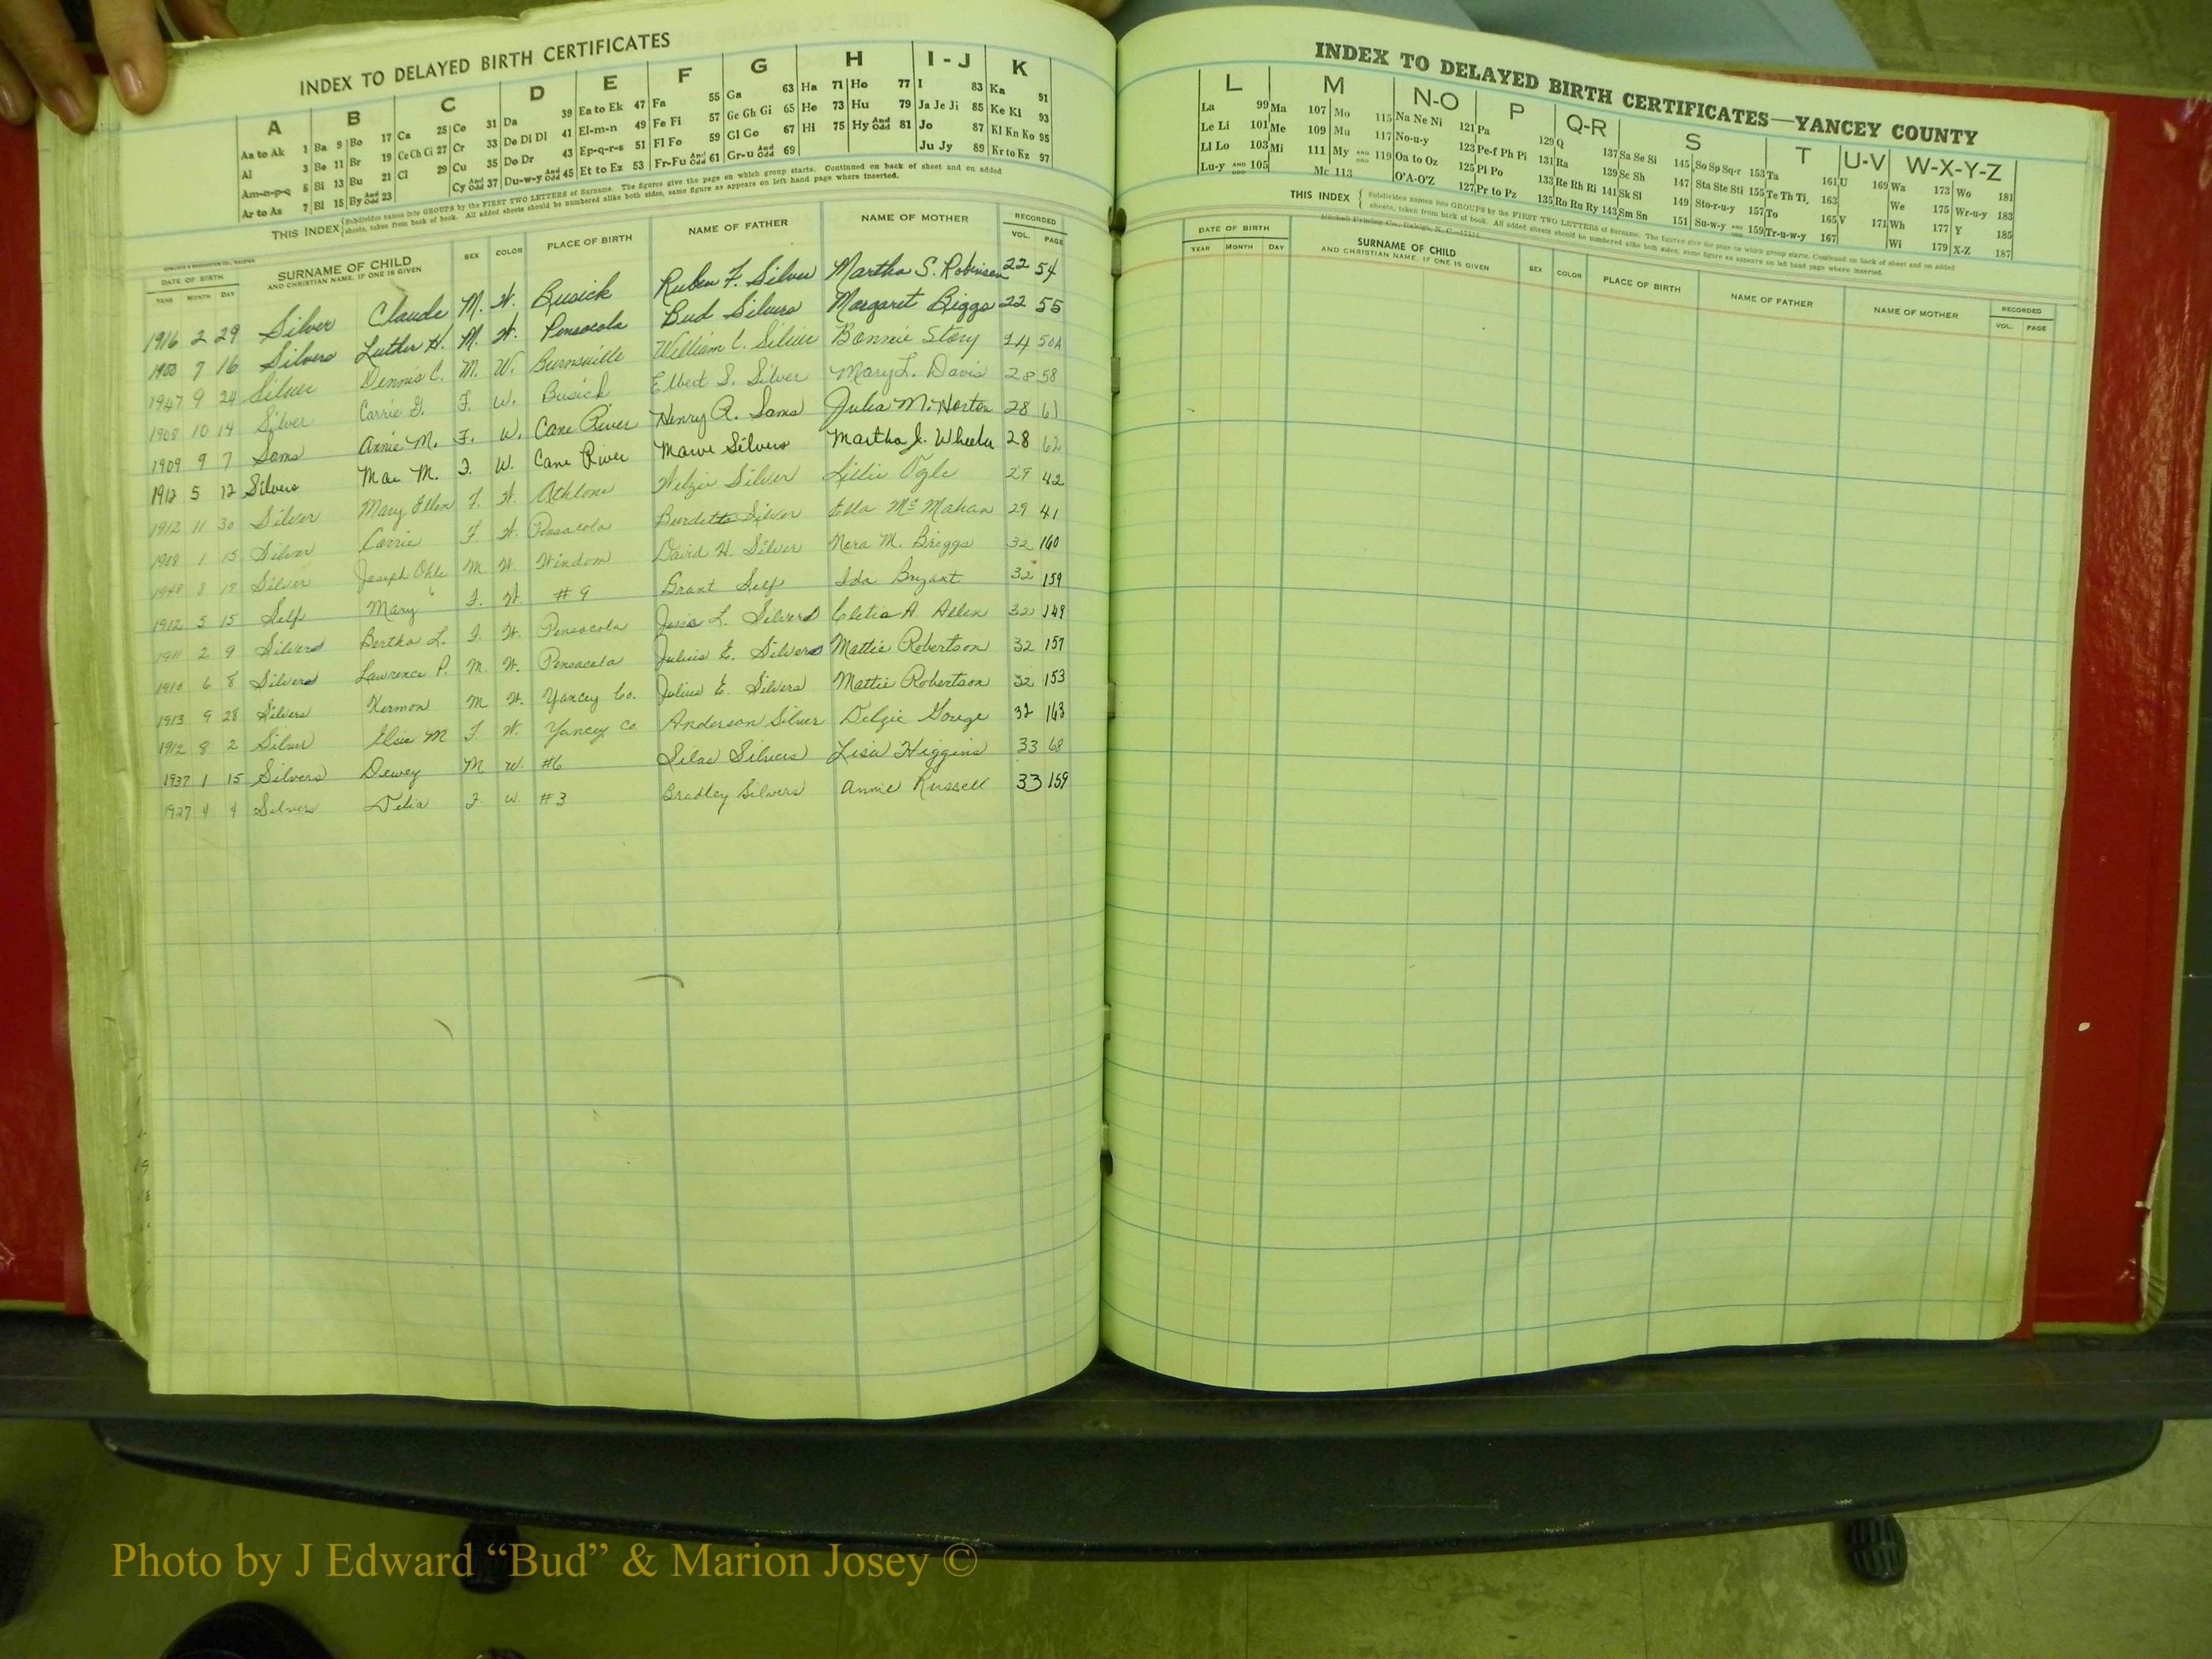 INDEX TO DELAYED BIRTH CERTIFICATES
A B C D E F G H I-J K
Aa to Ak 1 Ba 9 Bo 17 Ca 25 Co 31 Da 39 Ea to Ek 47 Fa 55 Ga 63 Ha 71 Ho 77 I 83 Ka 91
Al 3 Be 11 Br 19 Ce Ch Ci 27 Cr 33 De Di Dl 41 El-m-n 49 Fe Fi 57 Ge Gh Gi 65 He 73 Hu 79 Ja Je Ji 85 Ke Kl 93
Am-n-p-q 5 Bi 13 Bu 21 Cl 29 Cu 35 Do Dr 43 Ep-q-r-s 51 Fl Fo 59 Gl Go 67 Hi 75 Hy And Odd 81 Jo 87 Kl Kn Ko 95
Ar to Az 7 Bl 15 By And Odd 23 Cy And Odd 37 Du-w-y And Odd 45 Et to Ez 53 Fr-Fu And Odd 61 Gr-u And Odd 69 Ju Jy 89 Kr to Kz 97
THIS INDEX { Subdivides names into GROUPS by the FIRST TWO LETTERS of Surname. The figures give the page on which group starts. Continued on back of sheet and on added
sheets, taken from back of book. All added sheets should be numbered alike both sides, same figure as appears on left hand page where inserted.
DATE OF BIRTH SURNAME OF CHILD AND CHRISTIAN NAME, IF ONE IS GIVEN SEX COLOR PLACE OF BIRTH NAME OF FATHER NAME OF MOTHER RECORDED
YEAR MONTH DAY VOL. PAGE
1916 2 29 Silver Claude M. W. Busick Ruben F. Silver Martha S. Robinson 22 54
1900 7 16 Silvers Luther H. M. W. Pensacola Bud Silvers Margaret Biggs 22 55
1947 9 24 Silver Dennis C. M. W. Burnsville William C. Silver Bonnie Story 24 50A
1908 10 14 Silver Carrie G. F. W. Busick Elbert S. Silver Mary L. Davis 28 58
1909 9 7 Sams Annie M. F. W. Cane River Henry A. Sams Julia M. Norton 28 61
1912 5 12 Silvers Mae M. F. W. Cane River Marve Silvers Martha J. Wheeler 28 62
1912 11 30 Silver Mary Ellen F. W. Athlone Welzie Silver Lillie Ogle 29 42
1908 1 15 Silver Carrie F. W. Pensacola Burdette Silver Etta McMahan 29 41
17 Silver Joseph M. W. Windom David H. Silver Nora M. Briggs 32 160
1912 5 15 Self Mary F. W. #9 Grant Self Ida Bryant 32 159
1911 2 9 Silvers Bertha L. F. W. Pensacola Jessie L. Silvers Cletia A. Allen 32 149
1910 6 8 Silvers Lawrence P. M. W. Pensacola Julius E. Silvers Mattie Robertson 32 157
1913 9 28 Silvers Kermon M W. Yancey Co. Julius E. Silvers Mattie Robertson 32 153
1912 8 2 Silver Elsie M F. W. Yancey Co Anderson Silver Delzie Gouge 32 163
1937 1 15 Silvers Dewey M W. #6 Silas Silvers Lisa Higgins 33 68
1927 4 4 Silvers Delia F. W. #3 Bradley Silvers Annie Russell 33 159
INDEX TO DELAYED BIRTH CERTIFICATES—YANCEY COUNTY
L M N-O P Q-R S T U-V W-X-Y-Z
La 99 Ma 107 Mo 115 Na Ne Ni 121 Pa 129 Q 137 Sa Se Si 145 So Sp Sq-r 153 Ta 161 U 169 Wa 173 Wo 181
Le Li 101 Me 109 Mu 117 No-u-y 123 Pe-f Ph Pi 131 Ra 139 Sc Sh 147 Sta Ste Sti 155 Te Th Ti, 163 We 175 Wr-u-y 183
Ll Lo 103 Mi 111 My AND ODD 119 Oa to Oz 125 Pl Po 133 Re Rh Ri 141 Sk Sl 149 Sto-r-u-y 157 To 165 V 171 Wh 177 Y 185
Lu-y AND ODD 105 Mc 113 O'A-O'Z 127 Pr to Pz 135 Ro Ru Ry 143 Sm Sn 151 Su-w-y AND ODD 159 Tr-u-w-y 167 Wi 179 X-Z 187
THIS INDEX { Subdivides names into GROUPS by the FIRST TWO LETTERS of Surname. The figures give the page on which group starts. Continued on back of sheet and on added
sheets, taken from back of book. All added sheets should be numbered alike both sides, same figure as appears on left hand page where inserted.
Mitchell Printing Co., Raleigh, N. C.
DATE OF BIRTH SURNAME OF CHILD AND CHRISTIAN NAME, IF ONE IS GIVEN SEX COLOR PLACE OF BIRTH NAME OF FATHER NAME OF MOTHER RECORDED
YEAR MONTH DAY VOL. PAGE
Photo by J Edward “Bud” & Marion Josey ©